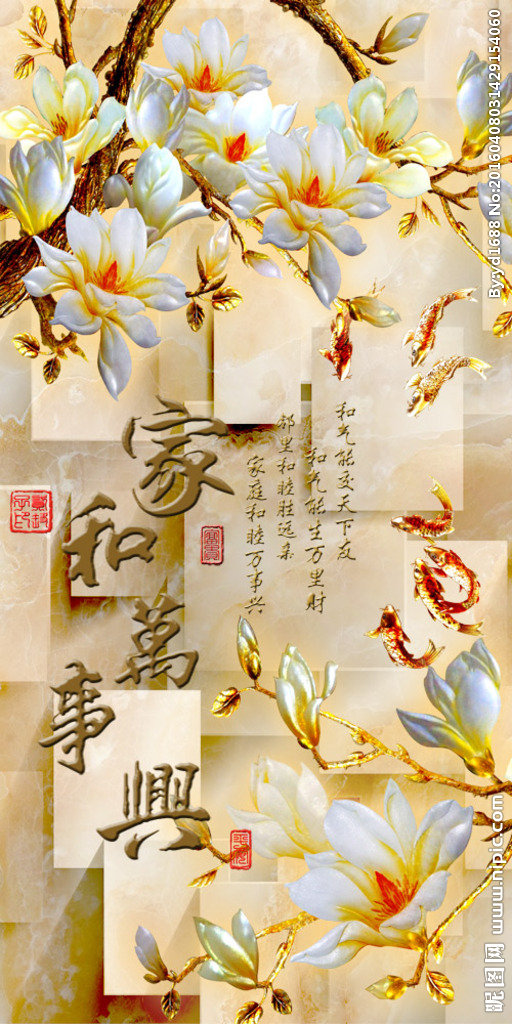 家和萬事興
和气能交天下友
和气能生万里财
邻里和睦胜远亲
家庭和睦万事兴
富貴
By:yd1688 No:20160408031429154060
昵图网 www.nipic.com